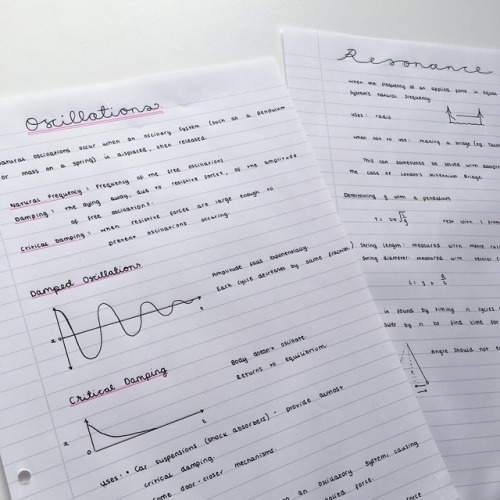 Oscillations
Natural oscillations occur when an oscillary system (such as a pendulum
or mass on a spring) is displaced, then released.
Natural Frequency: Frequency of the free oscillations
Damping: the dying away, due to resistive forces, of the amplitude
of free oscillations.
Critical Damping: when resistive forces are large enough to
prevent oscillations occuring.
Damped Oscillations
Amplitude falls exponentially.
Each cycle decreases by same fraction.
x
t
Critical Damping
Body doesn't oscillate.
Returns to equilibrium
x
0
t
uses: • Car suspensions (shock absorbers) - provide almost
critical damping.
some door-closer mechanisms.
on an oscillatory system, causing
force.
force
Resonance
when the frequency of an applied force is equal
system's natural frequency.
uses: radio
when not to use: making a bridge (eg.
This can sometimes be solved with
the case of London's Millennium Bridge.
Determining g with a pendulum
T = 2π √ l g
String length: measured with metre
String diameter: measured with
l = + d 2
is found by timing n cycles
by n to find time for
Angle should not